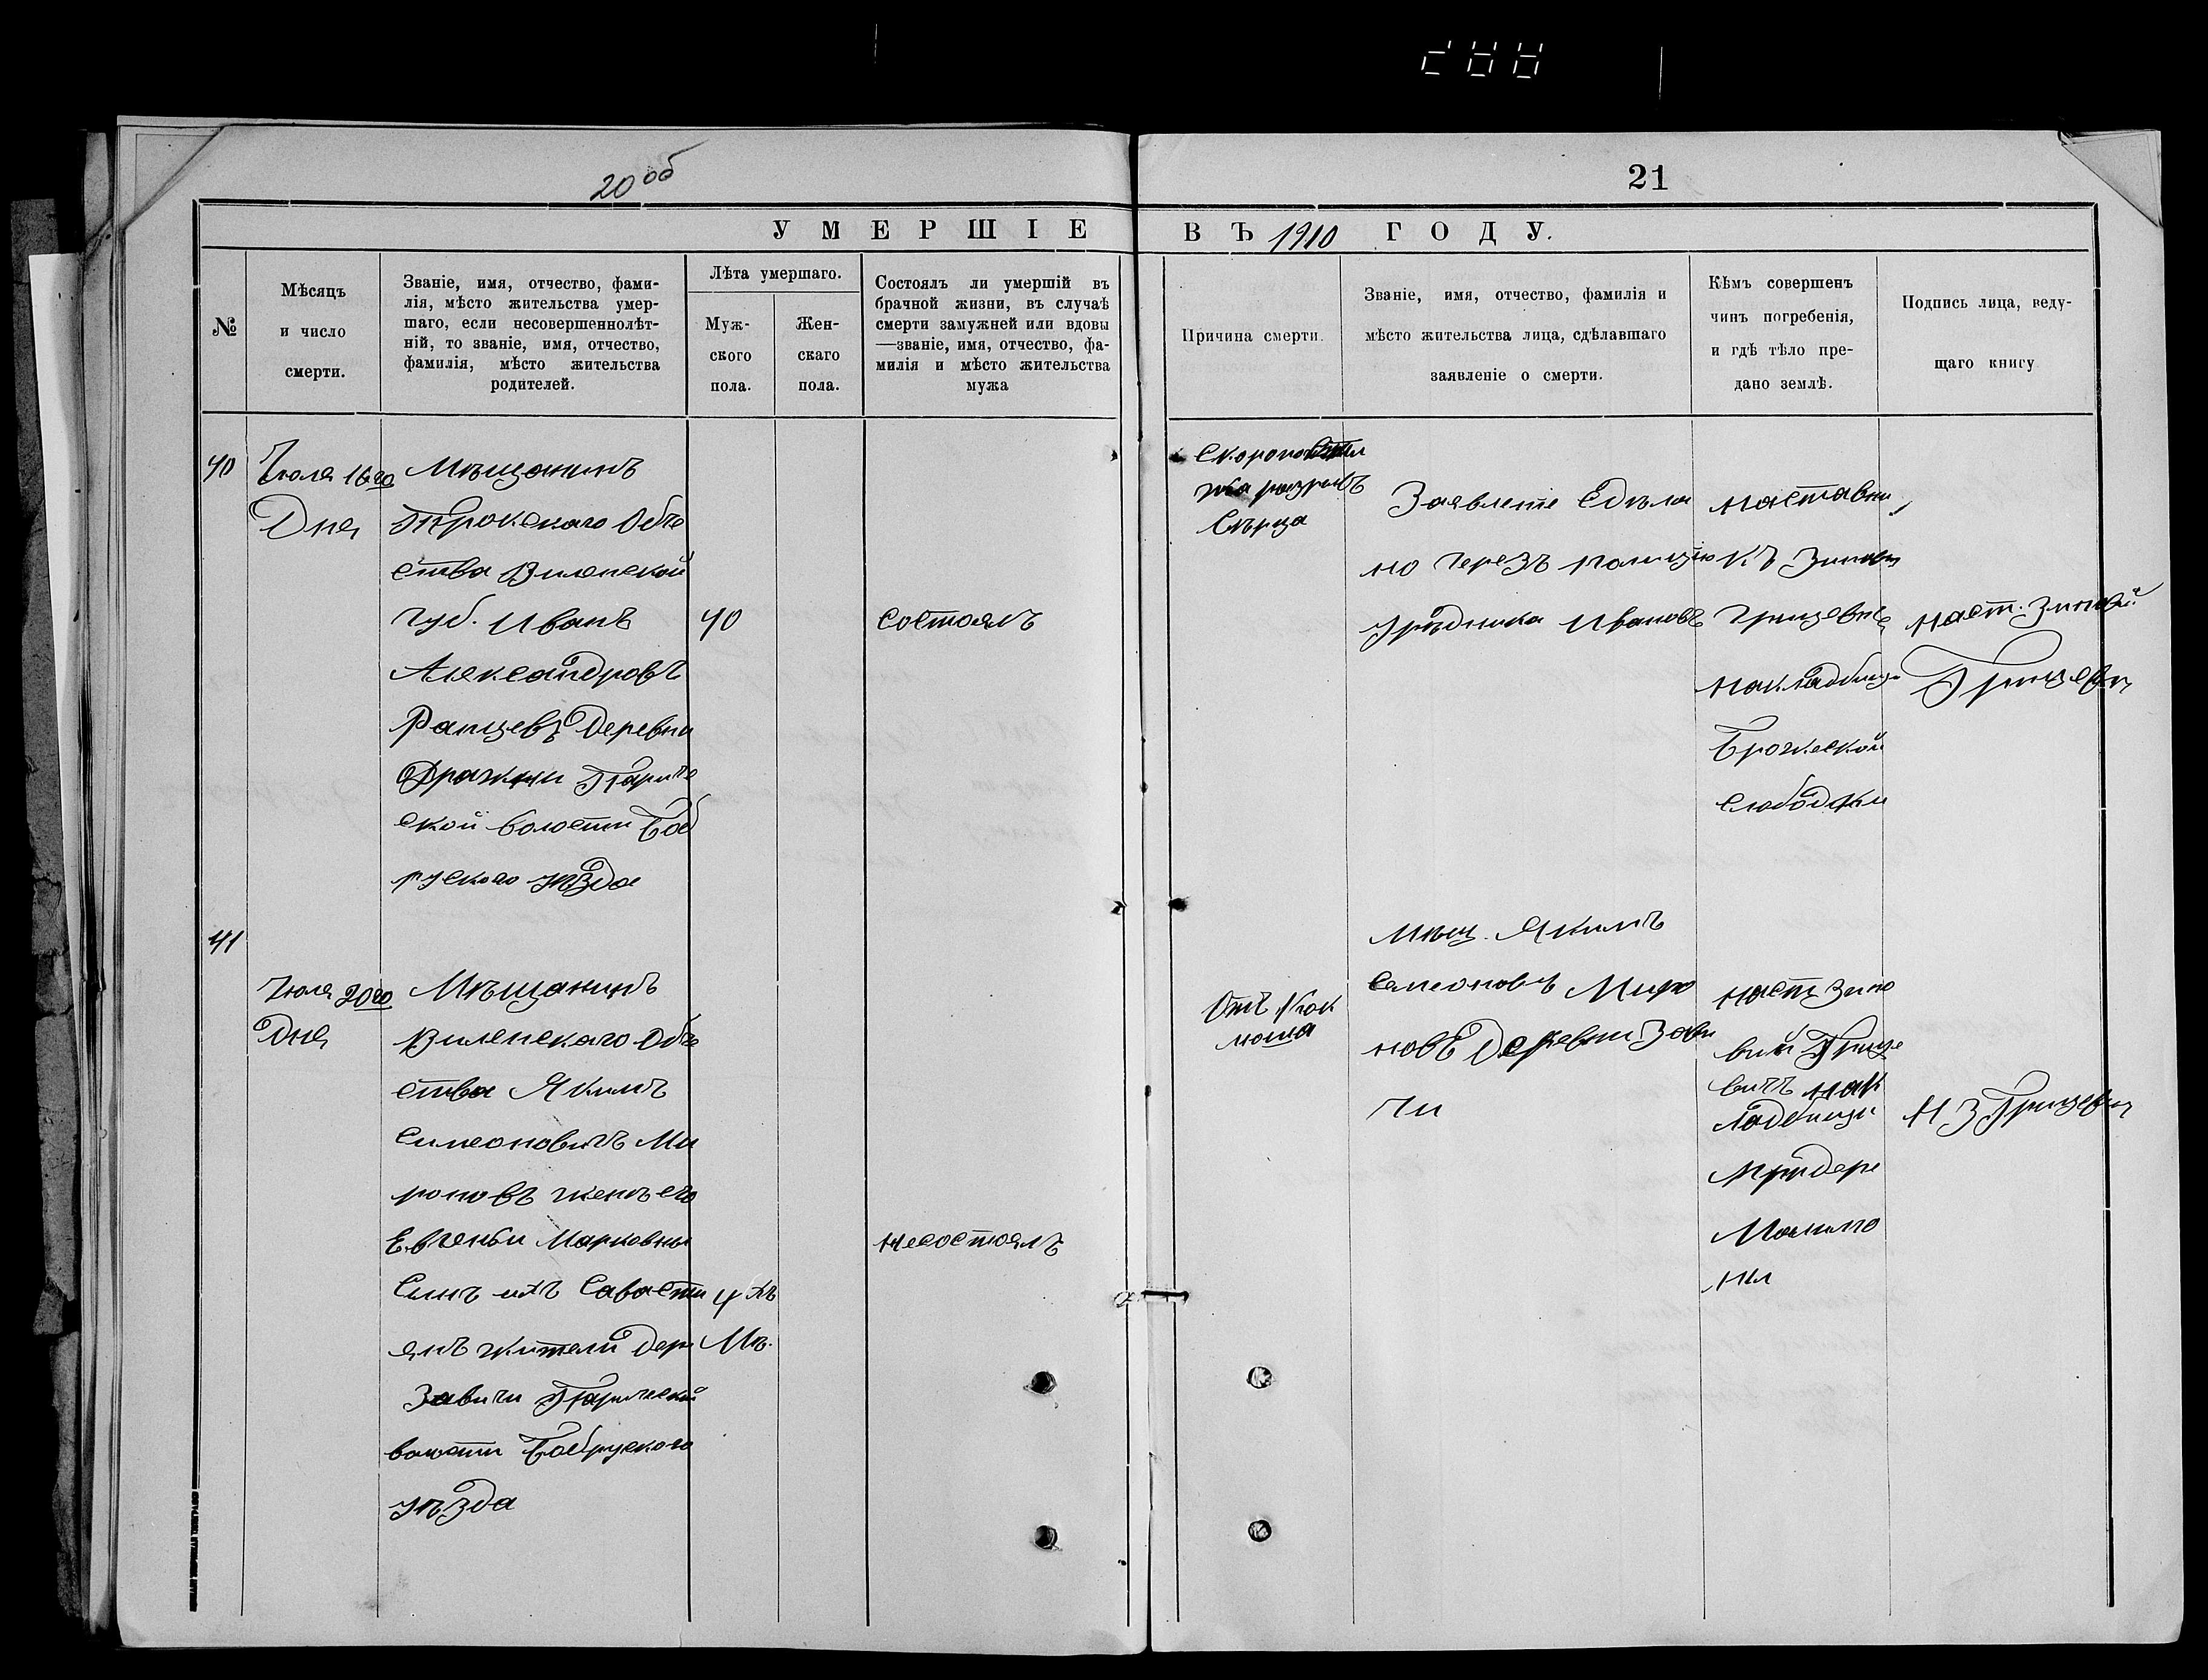 20 об
21
УМЕРШІЕ ВЪ 1910 ГОДУ.
№
Мѣсяцъ
и число
смерти.
Званіе, имя, отчество, фами-
лія, мѣсто жительства умер-
шаго, если несовершеннолѣт-
ній, то званіе, имя, отчество,
фамилія, мѣсто жительства
родителей.
Лѣта умершаго.
Муж-
ского
пола.
Жен-
скаго
пола.
Состоялъ ли умершій въ
брачной жизни, въ случаѣ
смерти замужней или вдовы
—званіе, имя, отчество, фа-
милія и мѣсто жительства
мужа
Причина смерти.
Званіе, имя, отчество, фамилія и
мѣсто жительства лица, сдѣлавшаго
заявленіе о смерти.
Кѣмъ совершенъ
чинъ погребенія,
и гдѣ тѣло пре-
дано землѣ.
Подпись лица, веду-
щаго книгу
40
Іюля 16го
Дня
Мѣщанинъ
Трокскаго Обче
ства Виленской
Губ. Иванъ
Александровъ
Ранцевъ Деревни
Дражни Парич
ской волости Боб
руского уѣзда
40
состоялъ
разрывъ
Сѣрца
Заявленіе Сдѣла
но Черезъ полицію
Урядника Ивановъ
наставни
къ Зинови
Грицевичъ
на кладбищи
Брожской
слободки
наст. Зиновій
Грицевич
41
Іюля 20го
Дня
Мѣщанинъ
Виленскаго Обче
ства Якимъ
Симеоновичъ Ми
роновъ женъ его
Евгеньи Марковны
Сынъ ихъ Савасти
янъ жители Дер.
Завичи Паричской
волости Бобруского
уѣзда
4 хъ
Мѣ.
несостоялъ
Отъ Кок
люша
Мѣщ. Якимъ
Семеоновъ Миро
новъ Деревни Зави
чи
наст Зино
вий Грице
вичъ на к
ладбищи
при дере
Малимо
ны
Н З Грицевич